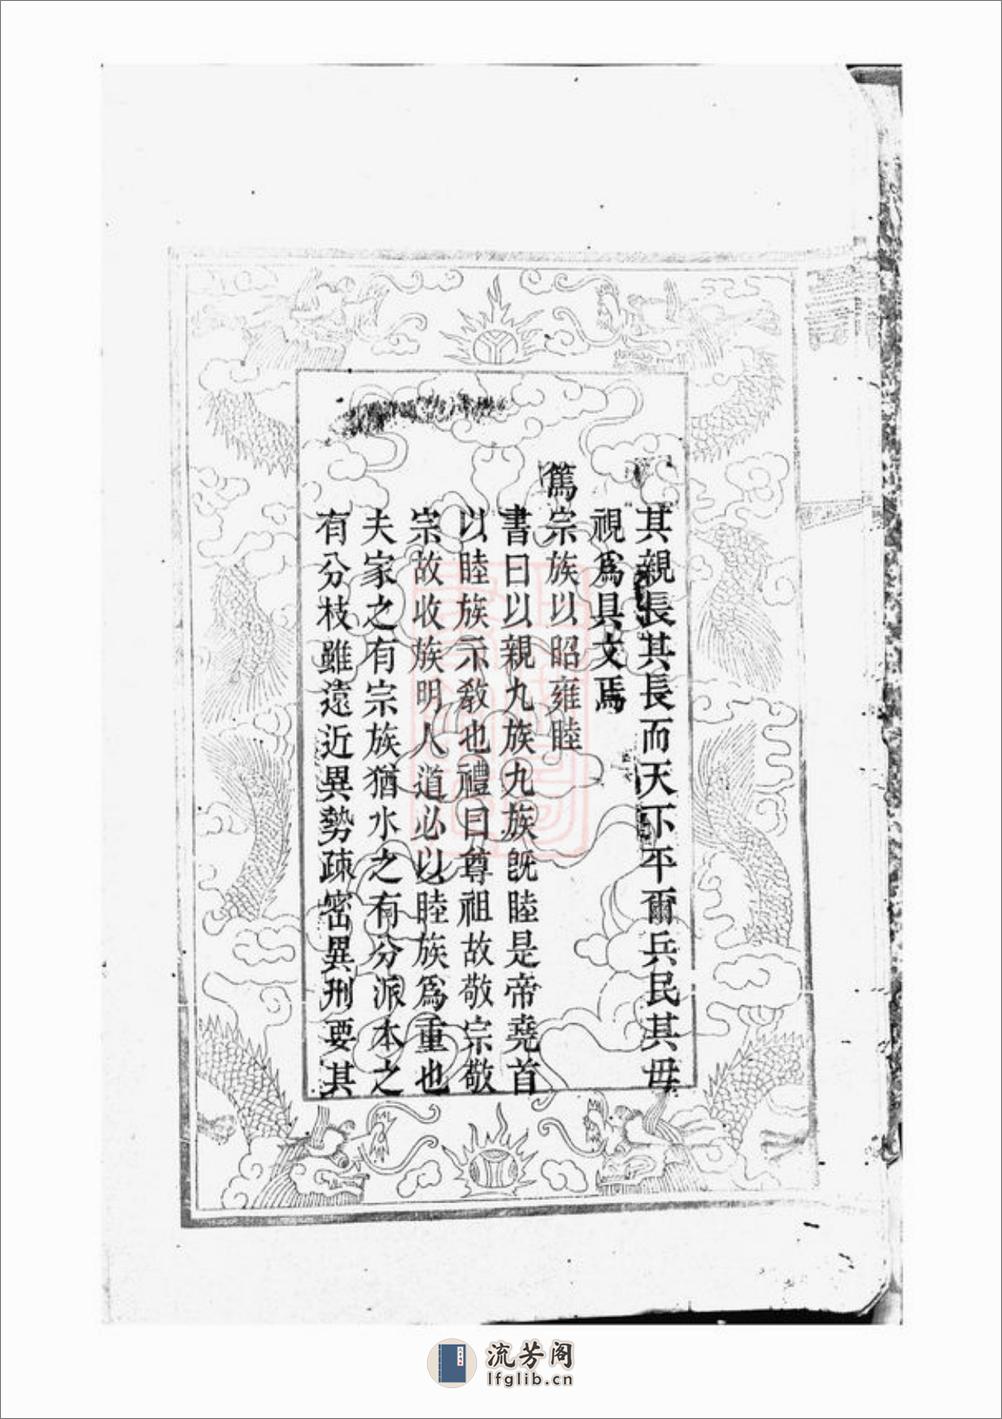 其親長其長而天下平爾兵民其毋
視爲具文焉
篤宗族以昭雍睦
書曰以親九族九族旣睦是帝堯首
以睦族示敎也禮曰尊祖故敬宗敬
宗故收族明人道必以睦族爲重也
夫家之有宗族猶水之有分派木之
有分枝雖遠近異勢疎密異刑要其
流芳阁
lfglib.cn